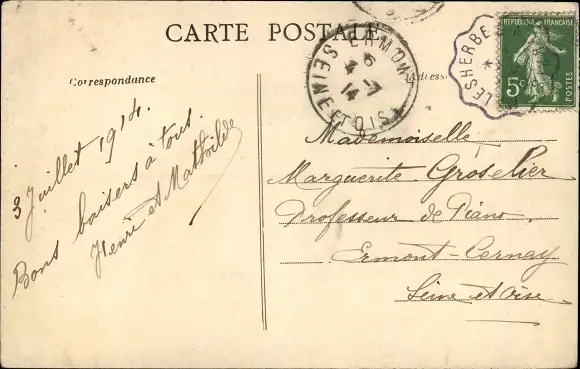 CARTE POSTALE
Correspondance
Adress
3 Juillet 1914.
Bons baisers à tous.
Henri et Mathilde
ERMONT
6
4 -7
14
SEINE ET OISE
LESHERBE
RÉPUBLIQUE FRANÇAISE
5c
POSTES
Mademoiselle
Marguerite Groselier
Professeur de Piano,
Ermont-Cernay
Seine et Oise